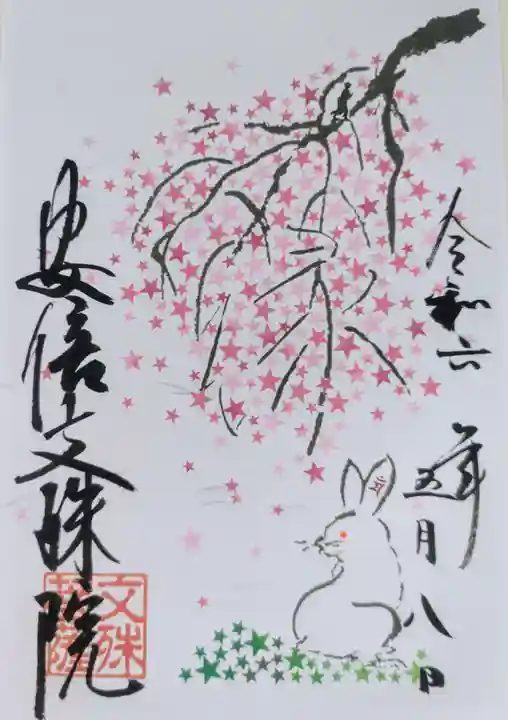 令和六年五月八日
安倍文殊院
文殊
菩薩